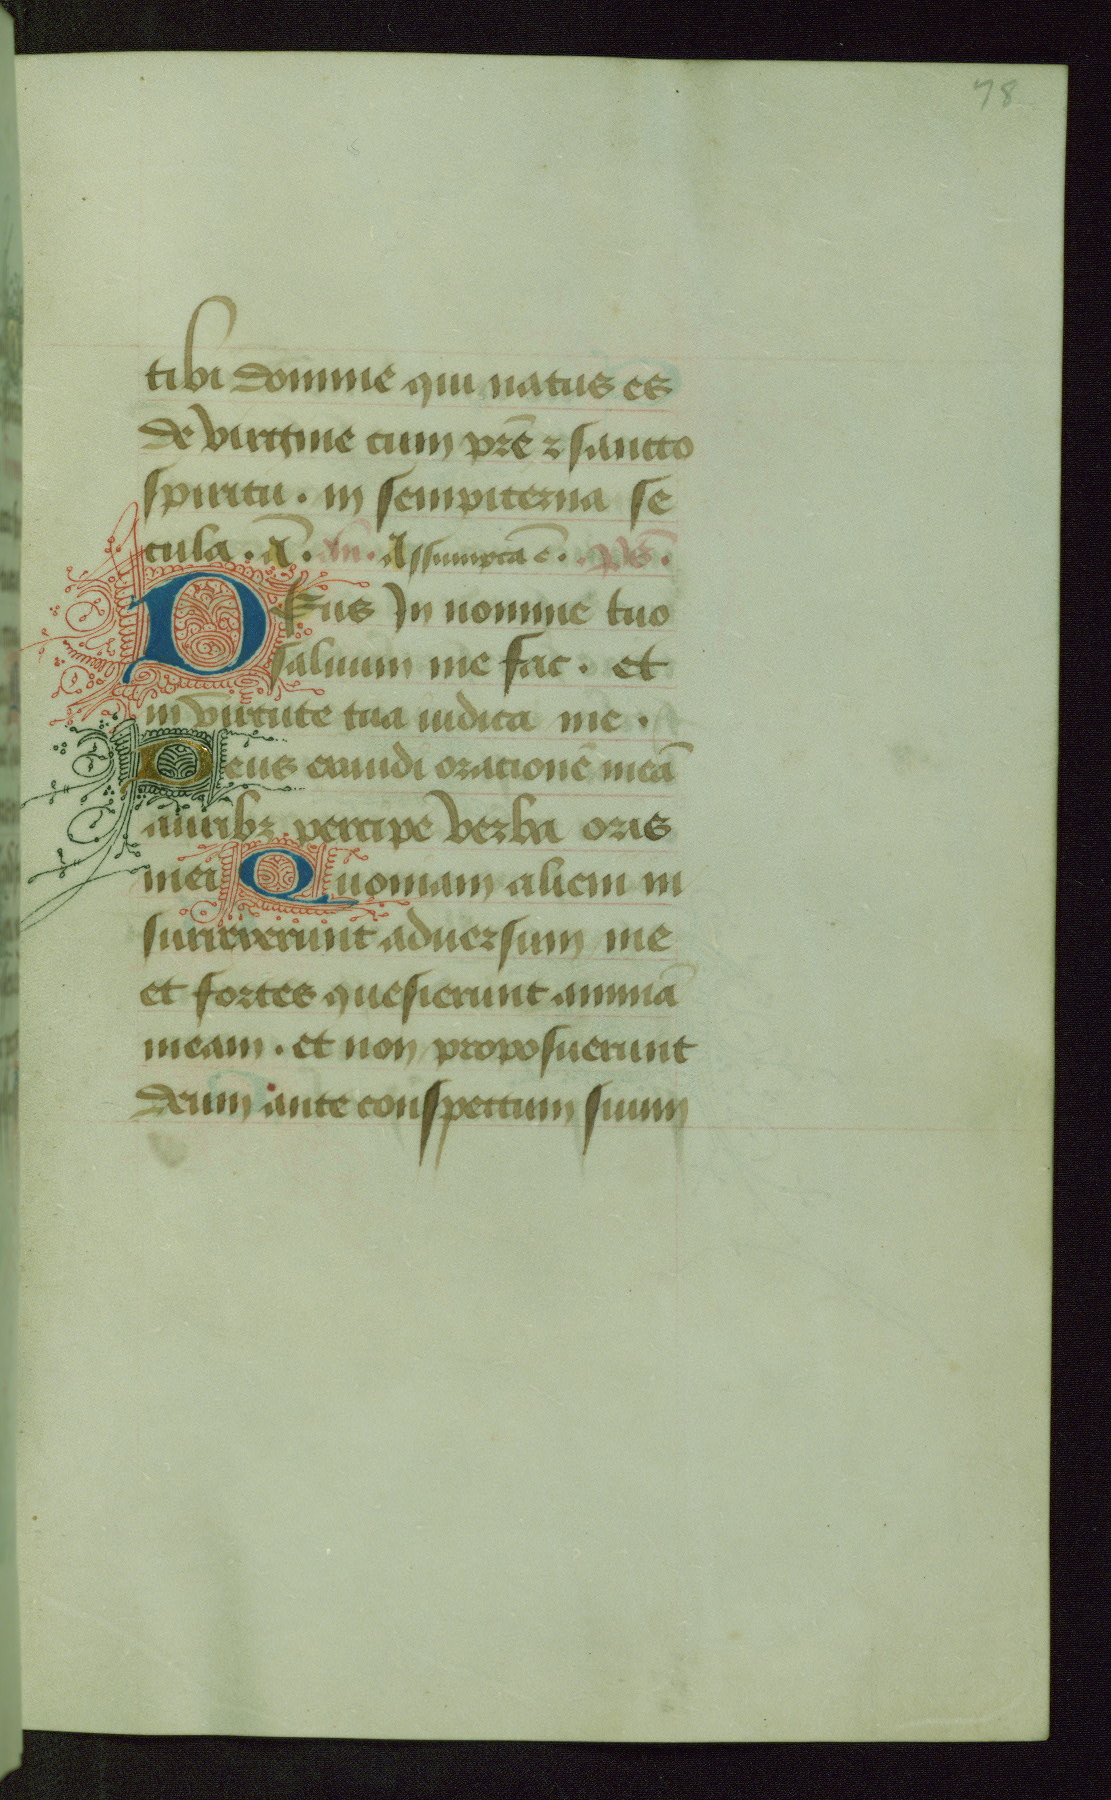 78
tibi domine qui natus es
de virgine cum prē ⁊ sancto
spiritu. in sempiterna se
cula. A. an. Assumpta ē. ps̄.
DEus in nomine tuo
saluum me fac. et
in virtute tua iudica me.
Deus exaudi orationē meā
auribꝫ percipe verba oris
mei Quoniam alieni in
surrexerunt aduersum me
et fortes quesierunt animā
meam. et non proposuerunt
deum ante conspectum suum